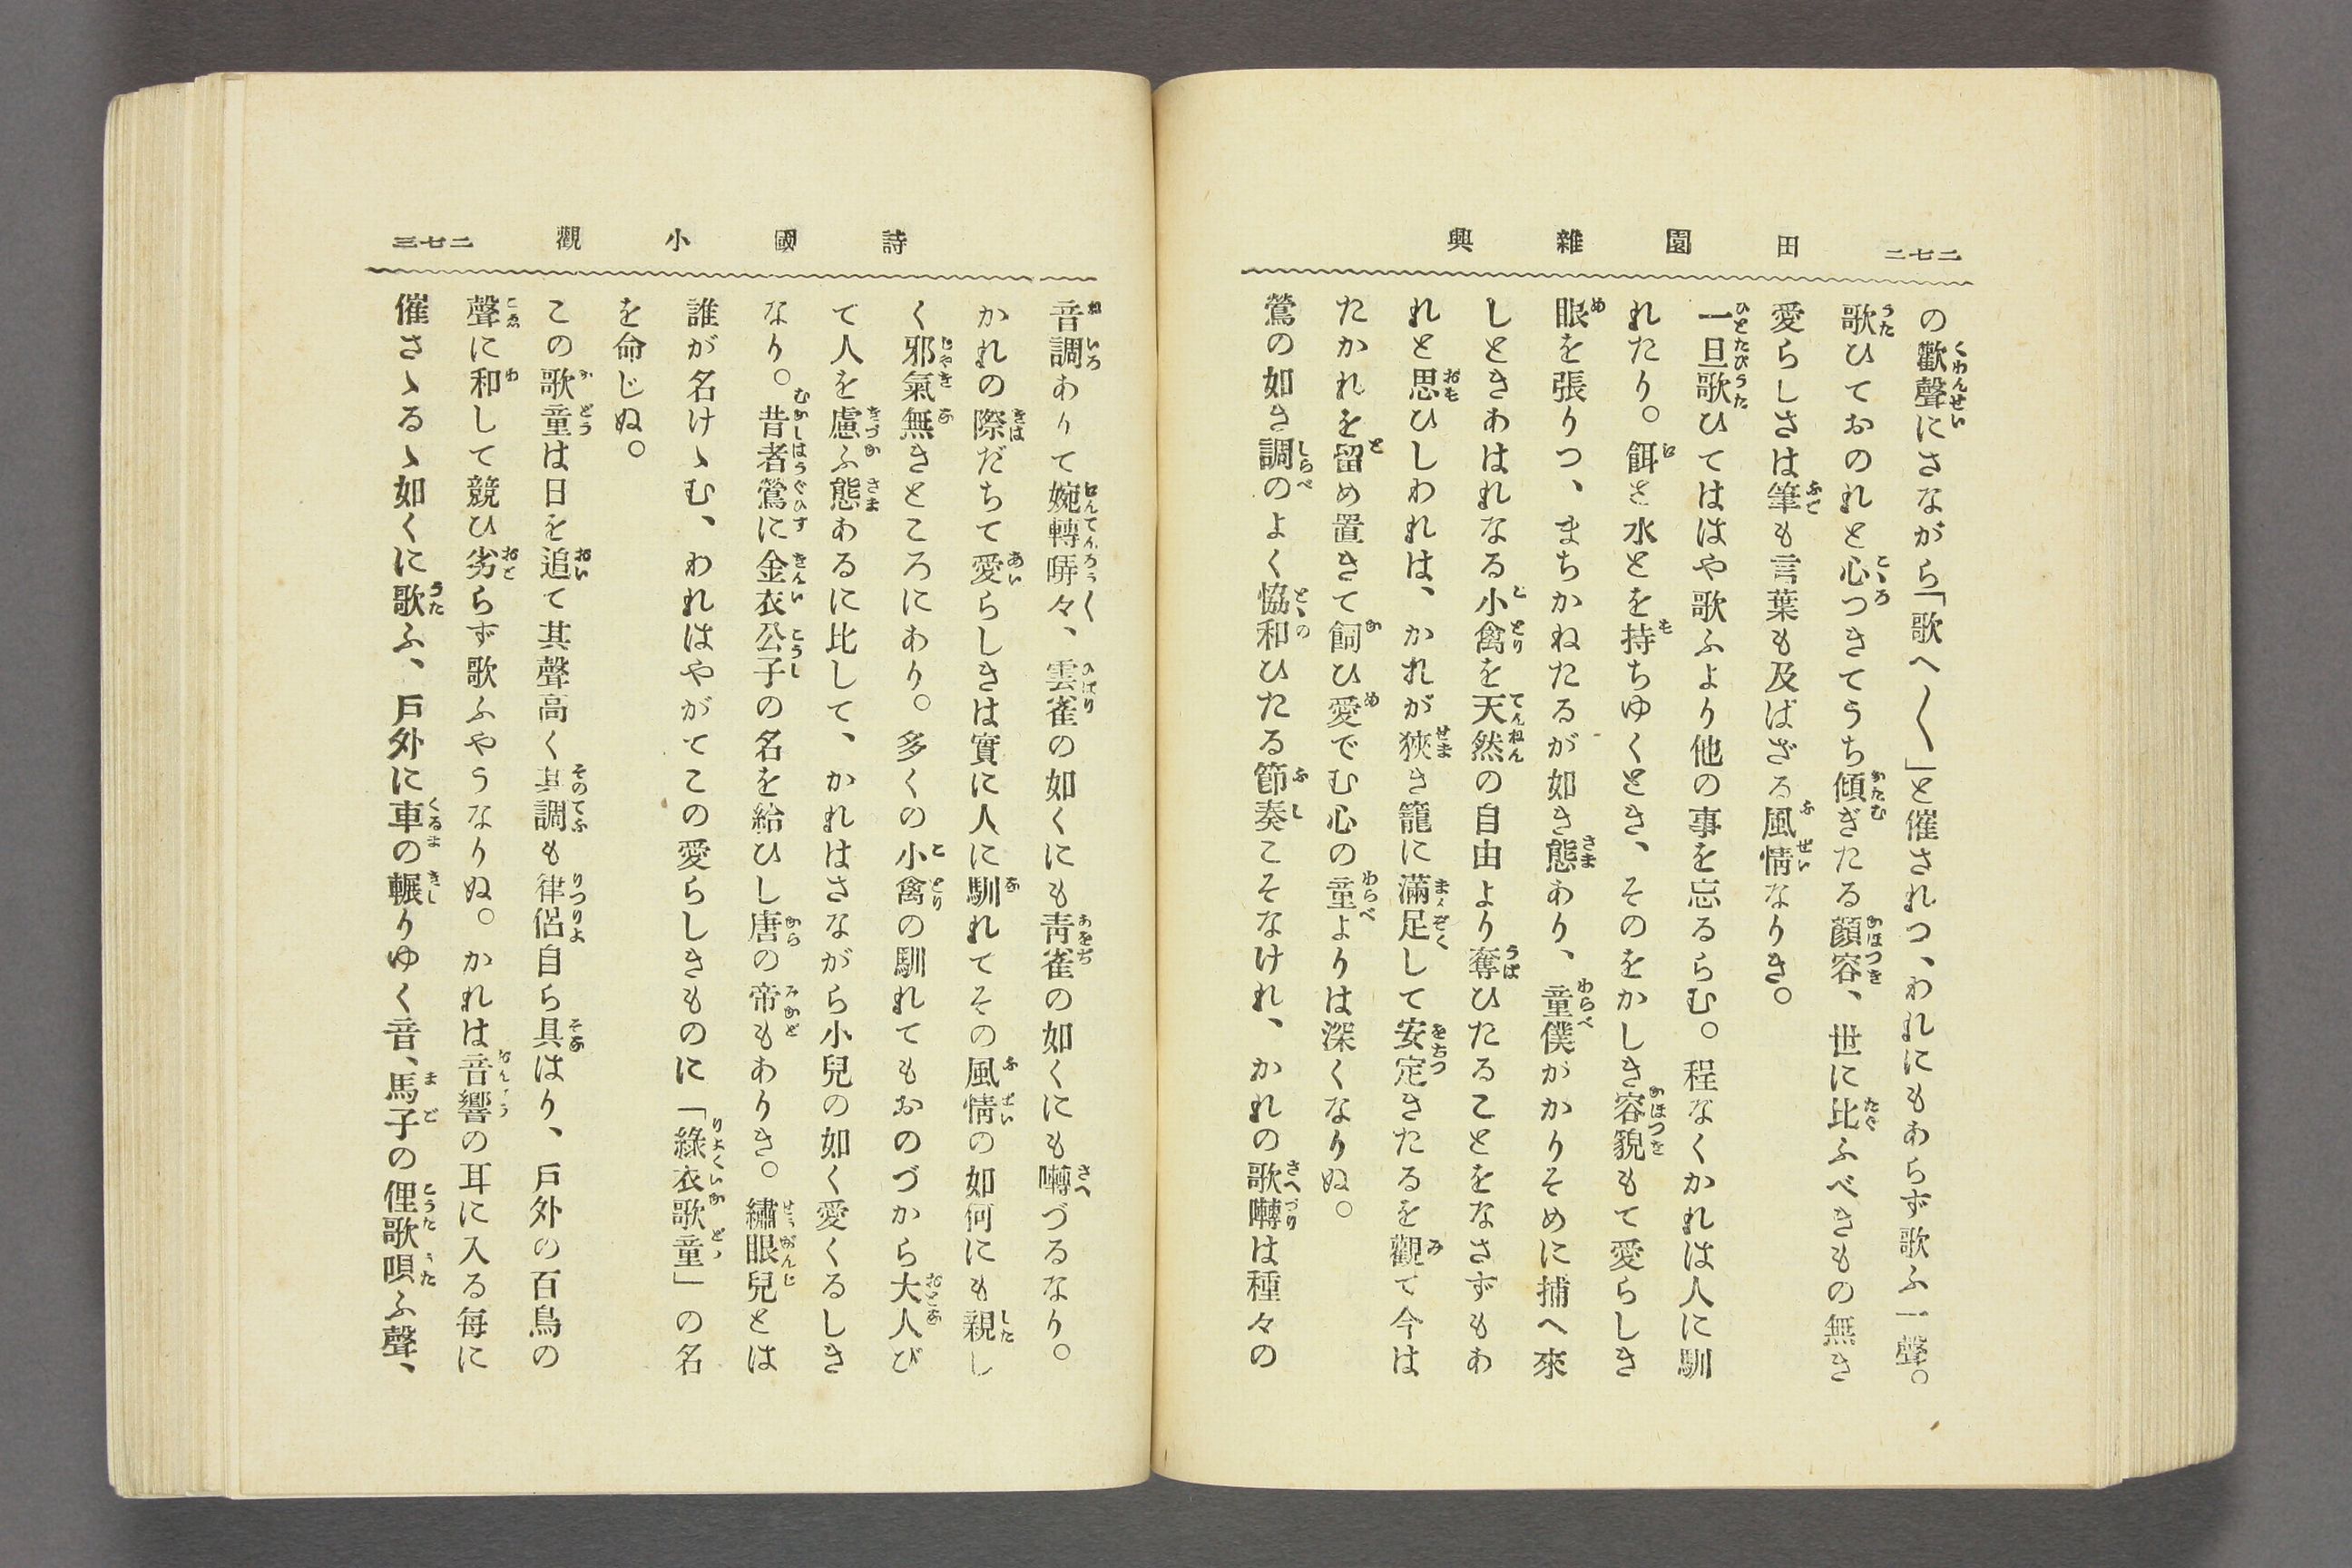 二七二　田園雜興
の歡聲にさながら「歌へ〱」と催されつ、われにもあらず歌ふ一聲。
歌ひておのれと心つきてうち傾ぎたる顏容、世に比ふべきもの無き
愛らしさは筆も言葉も及ばざる風情なりき。
一旦歌ひてははや歌ふより他の事を忘るらむ。程なくかれは人に馴
れたり。餌と水とを持ちゆくとき、そのをかしき容貌もて愛らしき
眼を張りつ、まちかねたるが如き態あり、童僕がかりそめに捕へ來
しときあはれなる小禽を天然の自由より奪ひたることをなさずもあ
れと思ひしわれは、かれが狹き籠に滿足して安定きたるを觀て今は
たかれを留め置きて飼ひ愛でむ心の童よりは深くなりぬ。
鶯の如き調のよく協和ひたる節奏こそなけれ、かれの歌囀は種々の
詩國小觀　二七三
音調ありて婉轉哢々、雲雀の如くにも靑雀の如くにも囀づるなり。
かれの際だちて愛らしきは實に人に馴れてその風情の如何にも親し
く邪氣無きところにあり。多くの小禽の馴れてもおのづから大人び
て人を慮ふ態あるに比して、かれはさながら小兒の如く愛くるしき
なり。昔者鶯に金衣公子の名を給ひし唐の帝もありき。繡眼兒とは
誰が名けゝむ、われはやがてこの愛らしきものに「綠衣歌童」の名
を命じぬ。
この歌童は日を追て其聲高く其調も律侶自ら具はり、戶外の百鳥の
聲に和して競ひ劣らず歌ふやうなりぬ。かれは音響の耳に入る每に
催さゝるゝ如くに歌ふ、戶外に車の輾りゆく音、馬子の俚歌唄ふ聲、